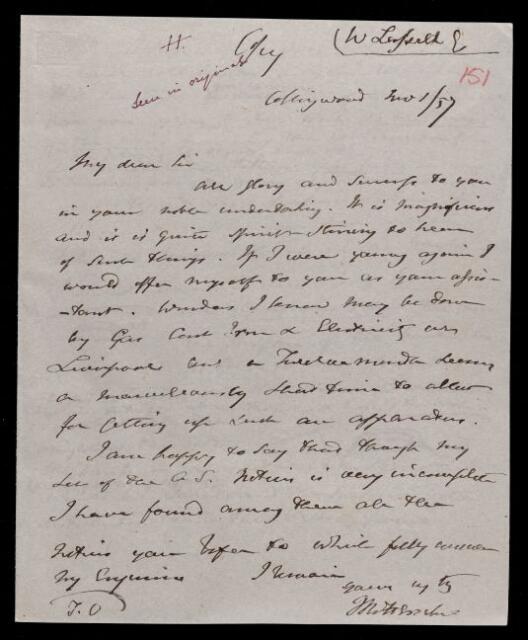 H. Copy W Lassell Esq
Seen in original
151
Collingwood Nov 1/57
My dear Sir
All glory and success to you
in your noble undertaking. It is magnificent
and it is quite spirit-stirring to hear
of such things. If I were young again I
would offer myself to you as your assis
-tant. Wonders I know may be done
by Gas Coal Iron & Electricity in
Liverpool but a Twelve month seems
a marvellously short time to allow
for getting up such an apparatus.
I am happy to say that though my
set of the A.S. Notices is very incomplete
I have found among them all the
Notices you refer to which fully answer
my Enquiries I remain
yours
T.O